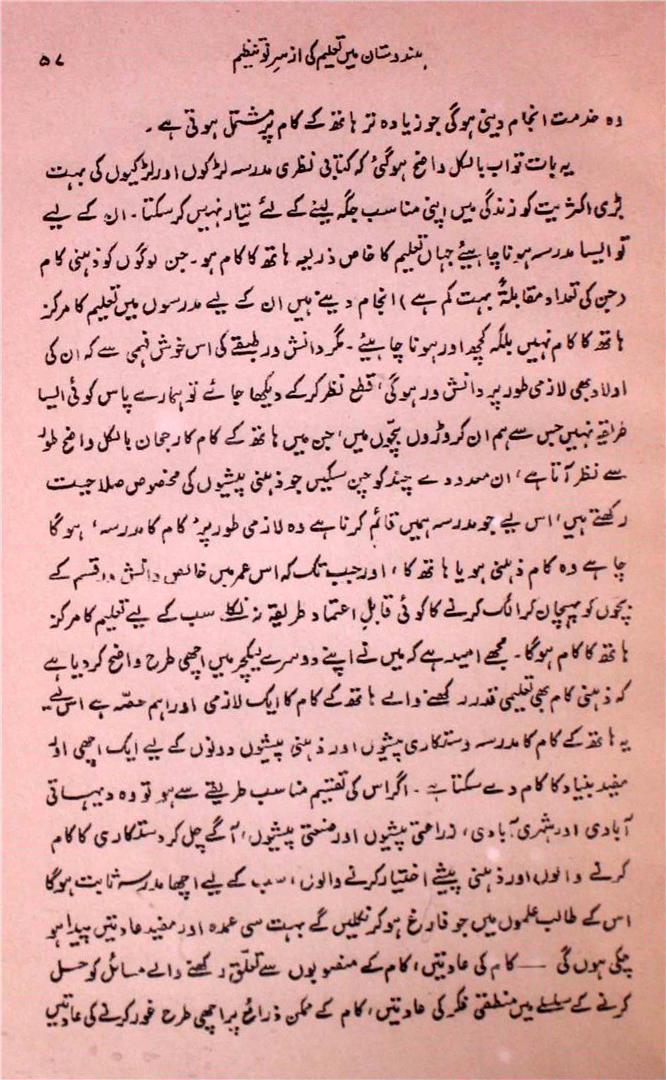 ہندوستان میں تعلیم کی از سرِ نو تنظیم ۵۷
وہ خدمت انجام دینی ہوگی جو زیادہ تر ہاتھ کے کام پر مشتمل ہوتی ہے۔
یہ بات تو اب بالکل واضح ہوگئی کہ کتابی نظری مدرسہ لڑکوں اور لڑکیوں کی بہت
بڑی اکثریت کو زندگی میں اپنی مناسب جگہ لینے کے لئے تیار نہیں کرسکتا۔ ان کے لیے
تو ایسا مدرسہ ہونا چاہیئے جہاں تعلیم کا خاص ذریعہ ہاتھ کا کام ہو۔ جن لوگوں کو ذہنی کام
(جن کی تعداد مقابلۃً بہت کم ہے) انجام دینے ہیں ان کے لیے مدرسوں میں تعلیم کا مرکز
ہاتھ کا کام نہیں بلکہ کچھ اور ہونا چاہیئے۔ مگر دانش ور طبقے کی اس خوش فہمی سے کہ ان کی
اولاد بھی لازمی طور پر دانش ور ہوگی، قطع نظر کرکے دیکھا جائے تو ہمارے پاس کوئی ایسا
طریقہ نہیں جس سے ہم ان کروڑوں بچّوں میں، جن میں ہاتھ کے کام کا رجحان بالکل واضح طور
سے نظر آتا ہے، ان معدودے چند کو چن سکیں جو ذہنی پیشوں کی مخصوص صلاحیت
رکھتے ہیں، اس لیے جو مدرسہ ہمیں قائم کرنا ہے وہ لازمی طور پر 'کام کا مدرسہ' ہوگا
چاہے وہ کام ذہنی ہو یا ہاتھ کا، اور جب تک کہ اس عمر میں خالص دانش ور قسم کے
بچّوں کو پہچان کر الگ کرنے کا کوئی قابلِ اعتماد طریقہ نہ نکلے سب کے لیے تعلیم کا مرکز
ہاتھ کا کام ہوگا۔ مجھے امید ہے کہ میں نے اپنے دوسرے لیکچر میں اچھی طرح واضح کردیا ہے
کہ ذہنی کام بھی تعلیمی قدر رکھنے والے ہاتھ کے کام کا ایک لازمی اور اہم حصّہ ہے اس لیے
یہ ہاتھ کے کام کا مدرسہ دستکاری پیشوں اور ذہنی پیشوں دونوں کے لیے ایک اچھی اور
مفید بنیاد کا کام دے سکتا ہے۔ اگر اس کی تقسیم مناسب طریقے سے ہو تو وہ دیہاتی
آبادی اور شہری آبادی، زراعتی پیشوں اور صنعتی پیشوں، آگے چل کر دستکاری کا کام
کرنے والوں اور ذہنی پیشے اختیار کرنے والوں، سب کے لیے اچھا مدرسہ ثابت ہوگا
اس کے طالب علموں میں جو فارغ ہو کر نکلیں گے بہت سی عمدہ اور مفید عادتیں پیدا ہو
چکی ہوں گی — کام کی عادتیں، کام کے منصوبوں سے تعلّق رکھنے والے مسائل کو حل
کرنے کے سلسلے میں منطقی فکر کی عادتیں، کام کے ممکن ذرائع پر اچھی طرح غور کرنے کی عادتیں